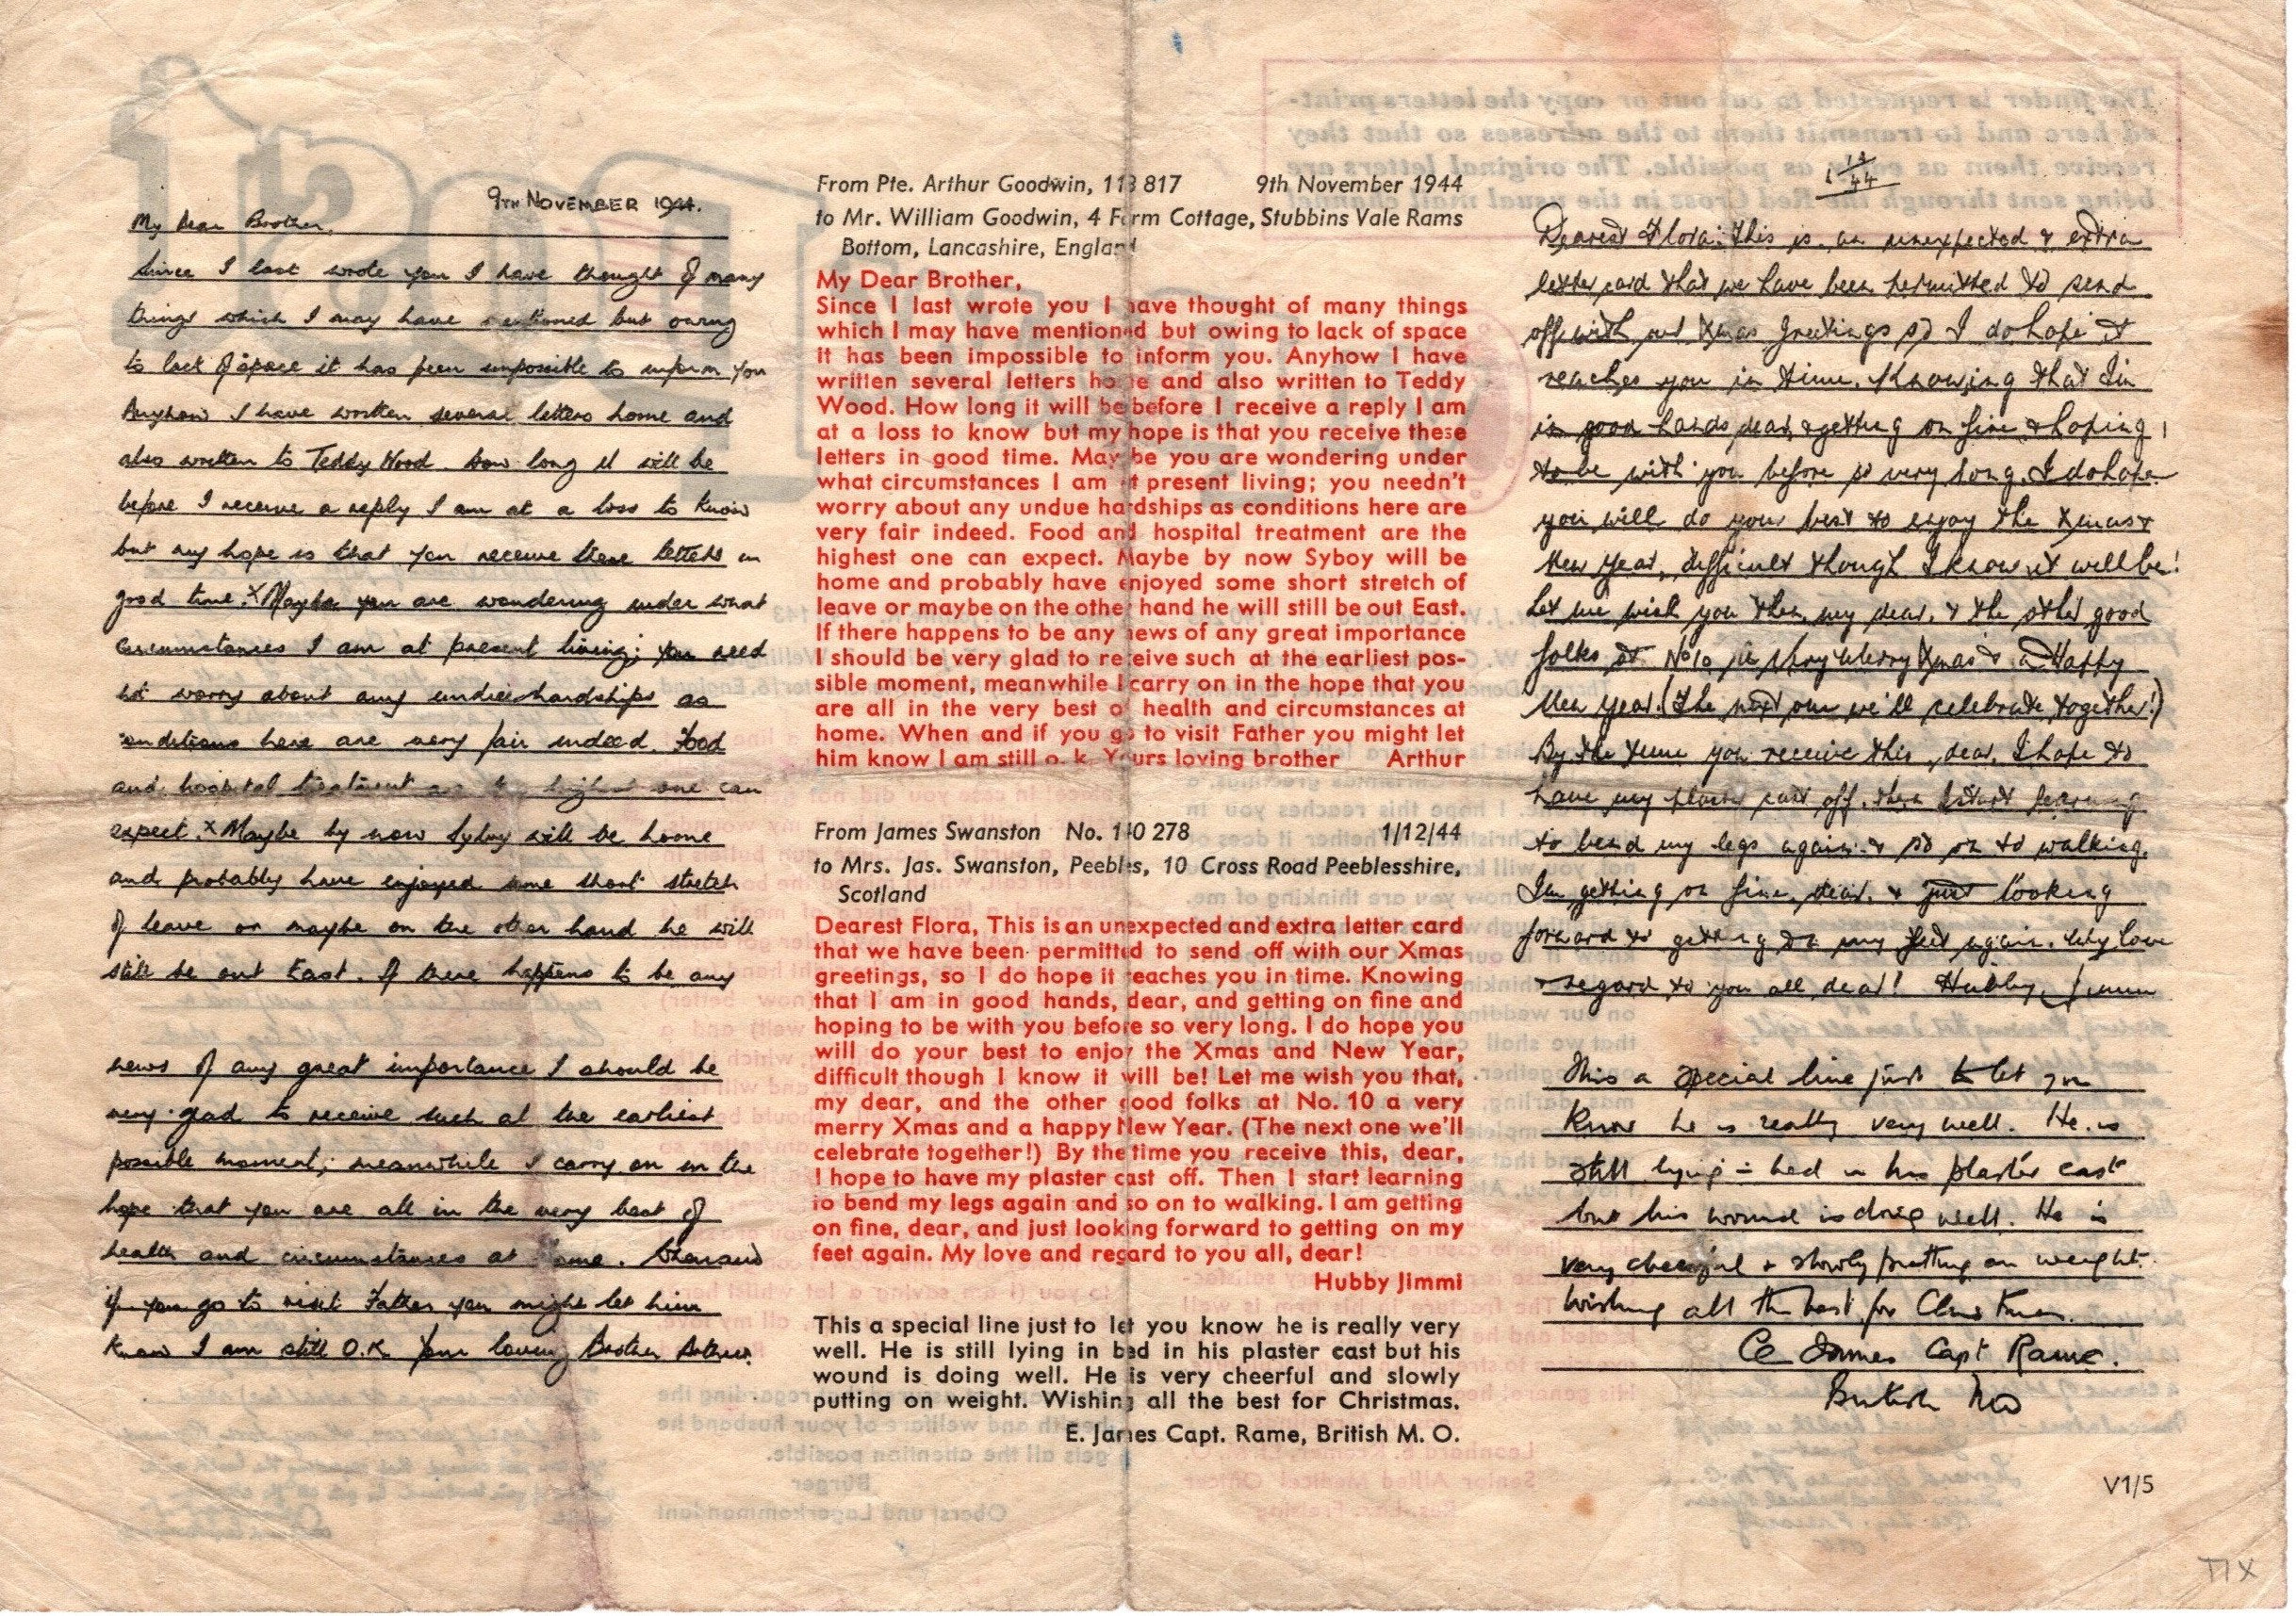 9TH NOVEMBER 1944.
My Dear Brother,
Since I last wrote you I have thought of many
things which I may have mentioned but owing
to lack of space it has been impossible to inform you
Anyhow I have written several letters home and
also written to Teddy Wood. How long it will be
before I receive a reply I am at a loss to know
but my hope is that you receive these letters in
good time. x Maybe you are wondering under what
circumstances I am at present living; you need
not worry about any undue hardships as
conditions here are very fair indeed. Food
and hospital treatment are the highest one can
expect. x Maybe by now Syboy will be home
and probably have enjoyed some short stretch
of leave or maybe on the other hand he will
still be out East. If there happens to be any
news of any great importance I should be
very glad to receive such at the earliest
possible moment; meanwhile I carry on in the
hope that you are all in the very best of
health and circumstances at home. When and
if you go to visit Father you might let him
know I am still O.K. Your loving Brother Arthur.
From Pte. Arthur Goodwin, 113 817 9th November 1944
to Mr. William Goodwin, 4 Farm Cottage, Stubbins Vale Rams
Bottom, Lancashire, England
My Dear Brother,
Since I last wrote you I have thought of many things
which I may have mentioned but owing to lack of space
it has been impossible to inform you. Anyhow I have
written several letters home and also written to Teddy
Wood. How long it will be before I receive a reply I am
at a loss to know but my hope is that you receive these
letters in good time. May be you are wondering under
what circumstances I am at present living; you needn't
worry about any undue hardships as conditions here are
very fair indeed. Food and hospital treatment are the
highest one can expect. Maybe by now Syboy will be
home and probably have enjoyed some short stretch of
leave or maybe on the other hand he will still be out East.
If there happens to be any news of any great importance
I should be very glad to receive such at the earliest pos-
sible moment, meanwhile I carry on in the hope that you
are all in the very best of health and circumstances at
home. When and if you go to visit Father you might let
him know I am still o. k. Yours loving brother Arthur
From James Swanston No. 140 278 1/12/44
to Mrs. Jas. Swanston, Peebles, 10 Cross Road Peeblesshire,
Scotland
Dearest Flora, This is an unexpected and extra letter card
that we have been permitted to send off with our Xmas
greetings, so I do hope it reaches you in time. Knowing
that I am in good hands, dear, and getting on fine and
hoping to be with you before so very long. I do hope you
will do your best to enjoy the Xmas and New Year,
difficult though I know it will be! Let me wish you that,
my dear, and the other good folks at No. 10 a very
merry Xmas and a happy New Year. (The next one we'll
celebrate together!) By the time you receive this, dear,
I hope to have my plaster cast off. Then I start learning
to bend my legs again and so on to walking. I am getting
on fine, dear, and just looking forward to getting on my
feet again. My love and regard to you all, dear!
Hubby Jimmi
This a special line just to let you know he is really very
well. He is still lying in bed in his plaster cast but his
wound is doing well. He is very cheerful and slowly
putting on weight. Wishing all the best for Christmas.
E. James Capt. Rame, British M. O.
Dearest Flora: This is an unexpected & extra
letter card that we have been permitted to send
off with our Xmas greetings so I do hope it
reaches you in time. Knowing that I'm
in good hands, dear, & getting on fine & hoping
to be with you before so very long. I do hope
you will do your best to enjoy the Xmas &
New Year, difficult though I know it will be!
Let me wish you then, my dear, & the other good
folks at No 10 a Very Merry Xmas & a Happy
New Year. (The next one we'll celebrate together!)
By the time you receive this, dear, I hope to
have my plaster cast off. then I start learning
to bend my legs again & so on to walking.
I'm getting on fine, dear, & just looking
forward to getting on my feet again. My love
& regard to you all, dear! Hubby, Jimmi
This a special line just to let you
know he is really very well. He is
still lying in bed in his plaster cast
but his wound is doing well. He is
very cheerful & slowly putting on weight.
Wishing all the best for Christmas.
CE James Capt Ramc.
British MO
V1/5
TIX